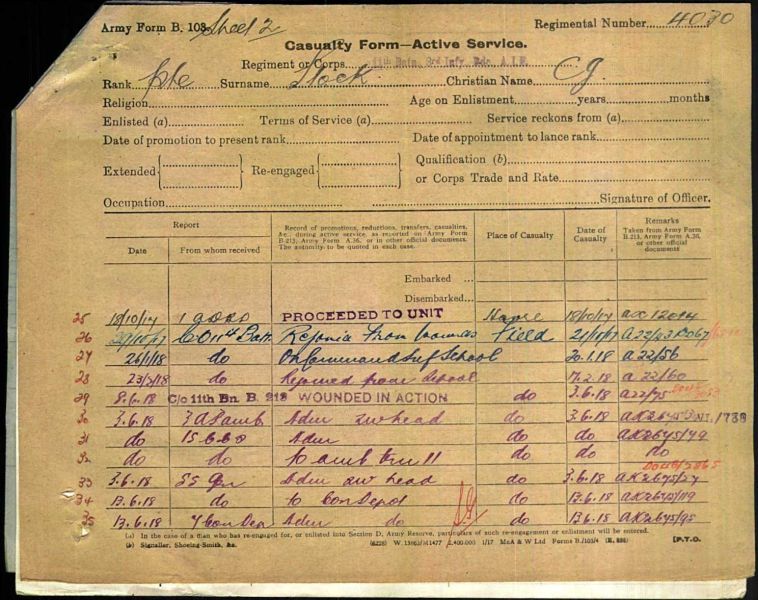 Army Form B. 103 Sheet 2
Regimental Number 4030
Casualty Form—Active Service.
Regiment or Corps 11th Battn. 3rd Infy. Bde. A.I.F.
Rank pte Surname Stock Christian Name C G
Religion Age on Enlistment years months
Enlisted (a) Terms of Service (a) Service reckons from (a)
Date of promotion to present rank Date of appointment to lance rank
Extended Re-engaged Qualification (b)
or Corps Trade and Rate
Occupation Signature of Officer.
Report
Date From whom received
Record of promotions, reductions, transfers, casualties, &c., during active service, as reported on Army Form B.213, Army Form A.36, or in other official documents. The authority to be quoted in each case.
Place of Casualty
Date of Casualty
Remarks
Taken from Army Form B.213, Army Form A.36, or other official documents
Embarked ...
Disembarked ...
25 18/10/17 PROCEEDED TO UNIT Havre 18/10/17
26 CO 11th Batt. from Field 21/10/17
27 26/1/18 do On Command School 20.1.18 a22/56
28 do Rejoined from School 17.2.18 a22/60
29 8.6.18 C/o 11th Bn. B. 213 WOUNDED IN ACTION do 3.6.18 a22/75
30 3.6.18 3 A F amb Adm GSW head do 3.6.18 1788
31 do 15 CCS Adm do do AK2645/49
32 do do to amb trn 11 do do do
33 3.6.18 Adm GSW head do 3.6.18 AK2645/57
34 13.6.18 do to Con Depot do 13.6.18 AK2645/119
35 13.6.18 7 Con Dep Adm do do 13.6.18 AK2645/95
(a) In the case of a man who has re-engaged for, or enlisted into Section D, Army Reserve, particulars of such re-engagement or enlistment will be entered.
(b) Signaller, Shoeing-Smith, &c. 2,400,000 1/17 McA & W Ltd Forms B./103/4 [P.T.O.